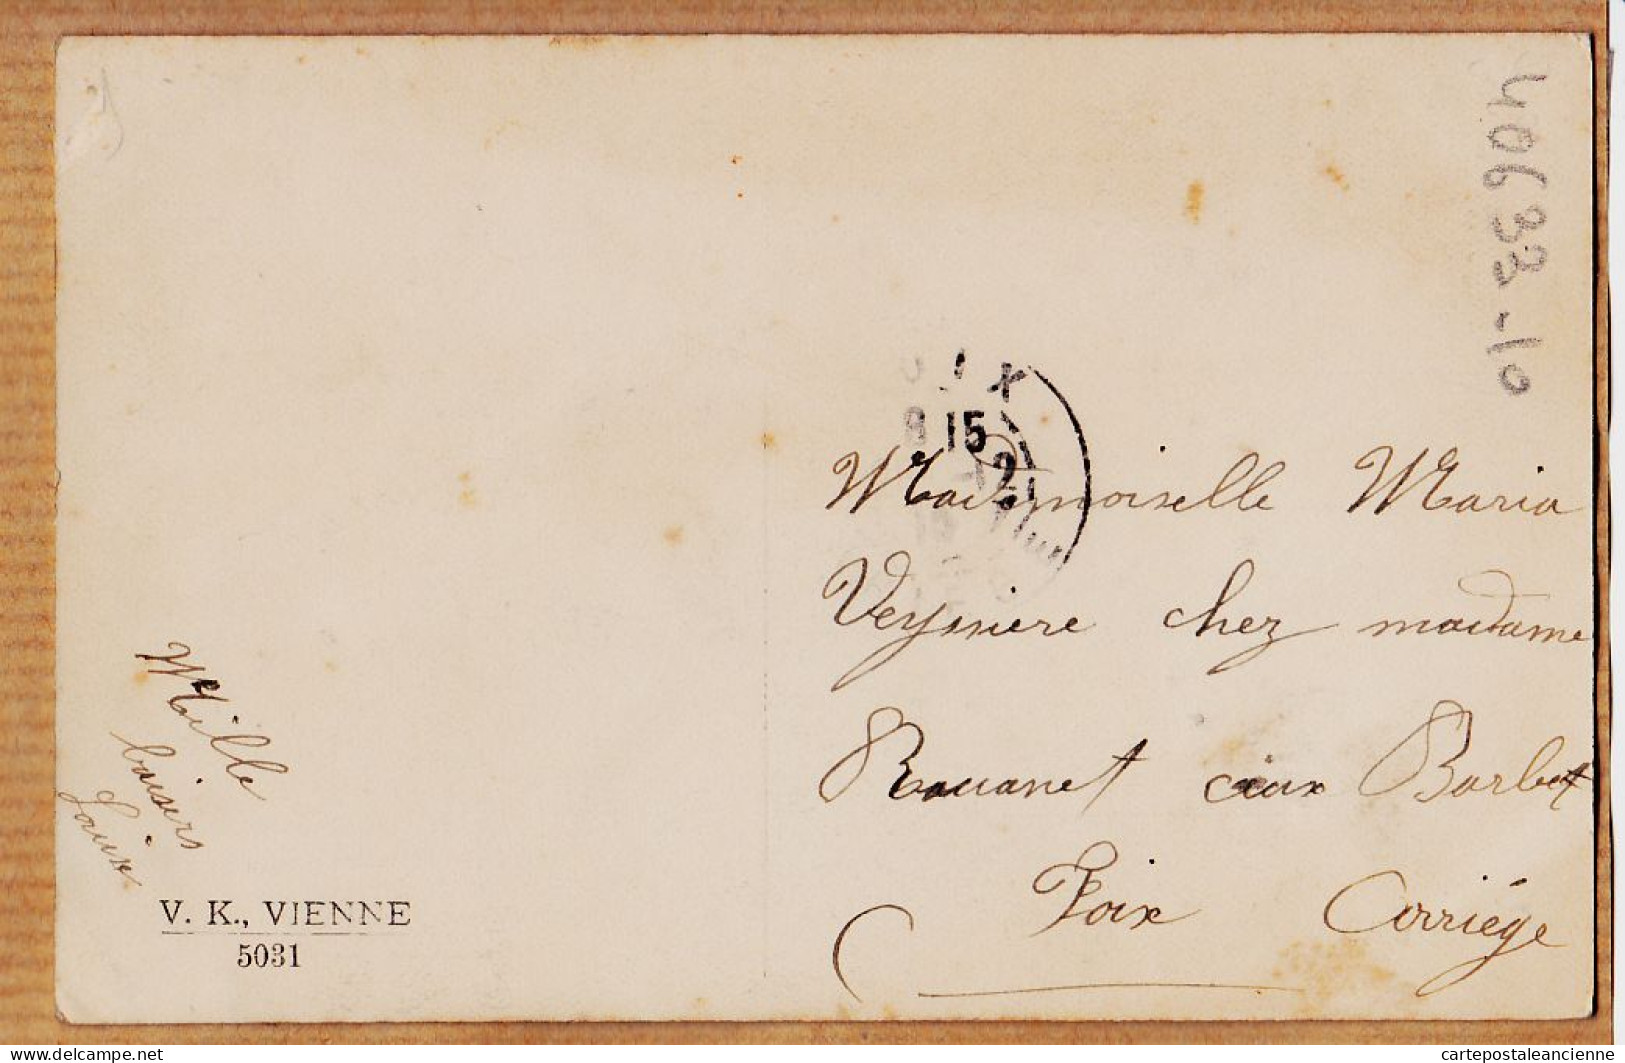 40633-10
IX
8 15
2
Mademoiselle Maria
Veyssiere chez madame
Rouanet aux Barbet
Foix Arriége
Mille
baisers
Louise
V. K., VIENNE
5031
© delcampe.net
cartepostaleancienne